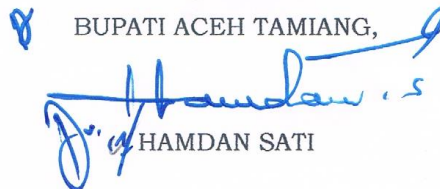 BUPATI ACEH TAMIANG,
HAMDAN SATI